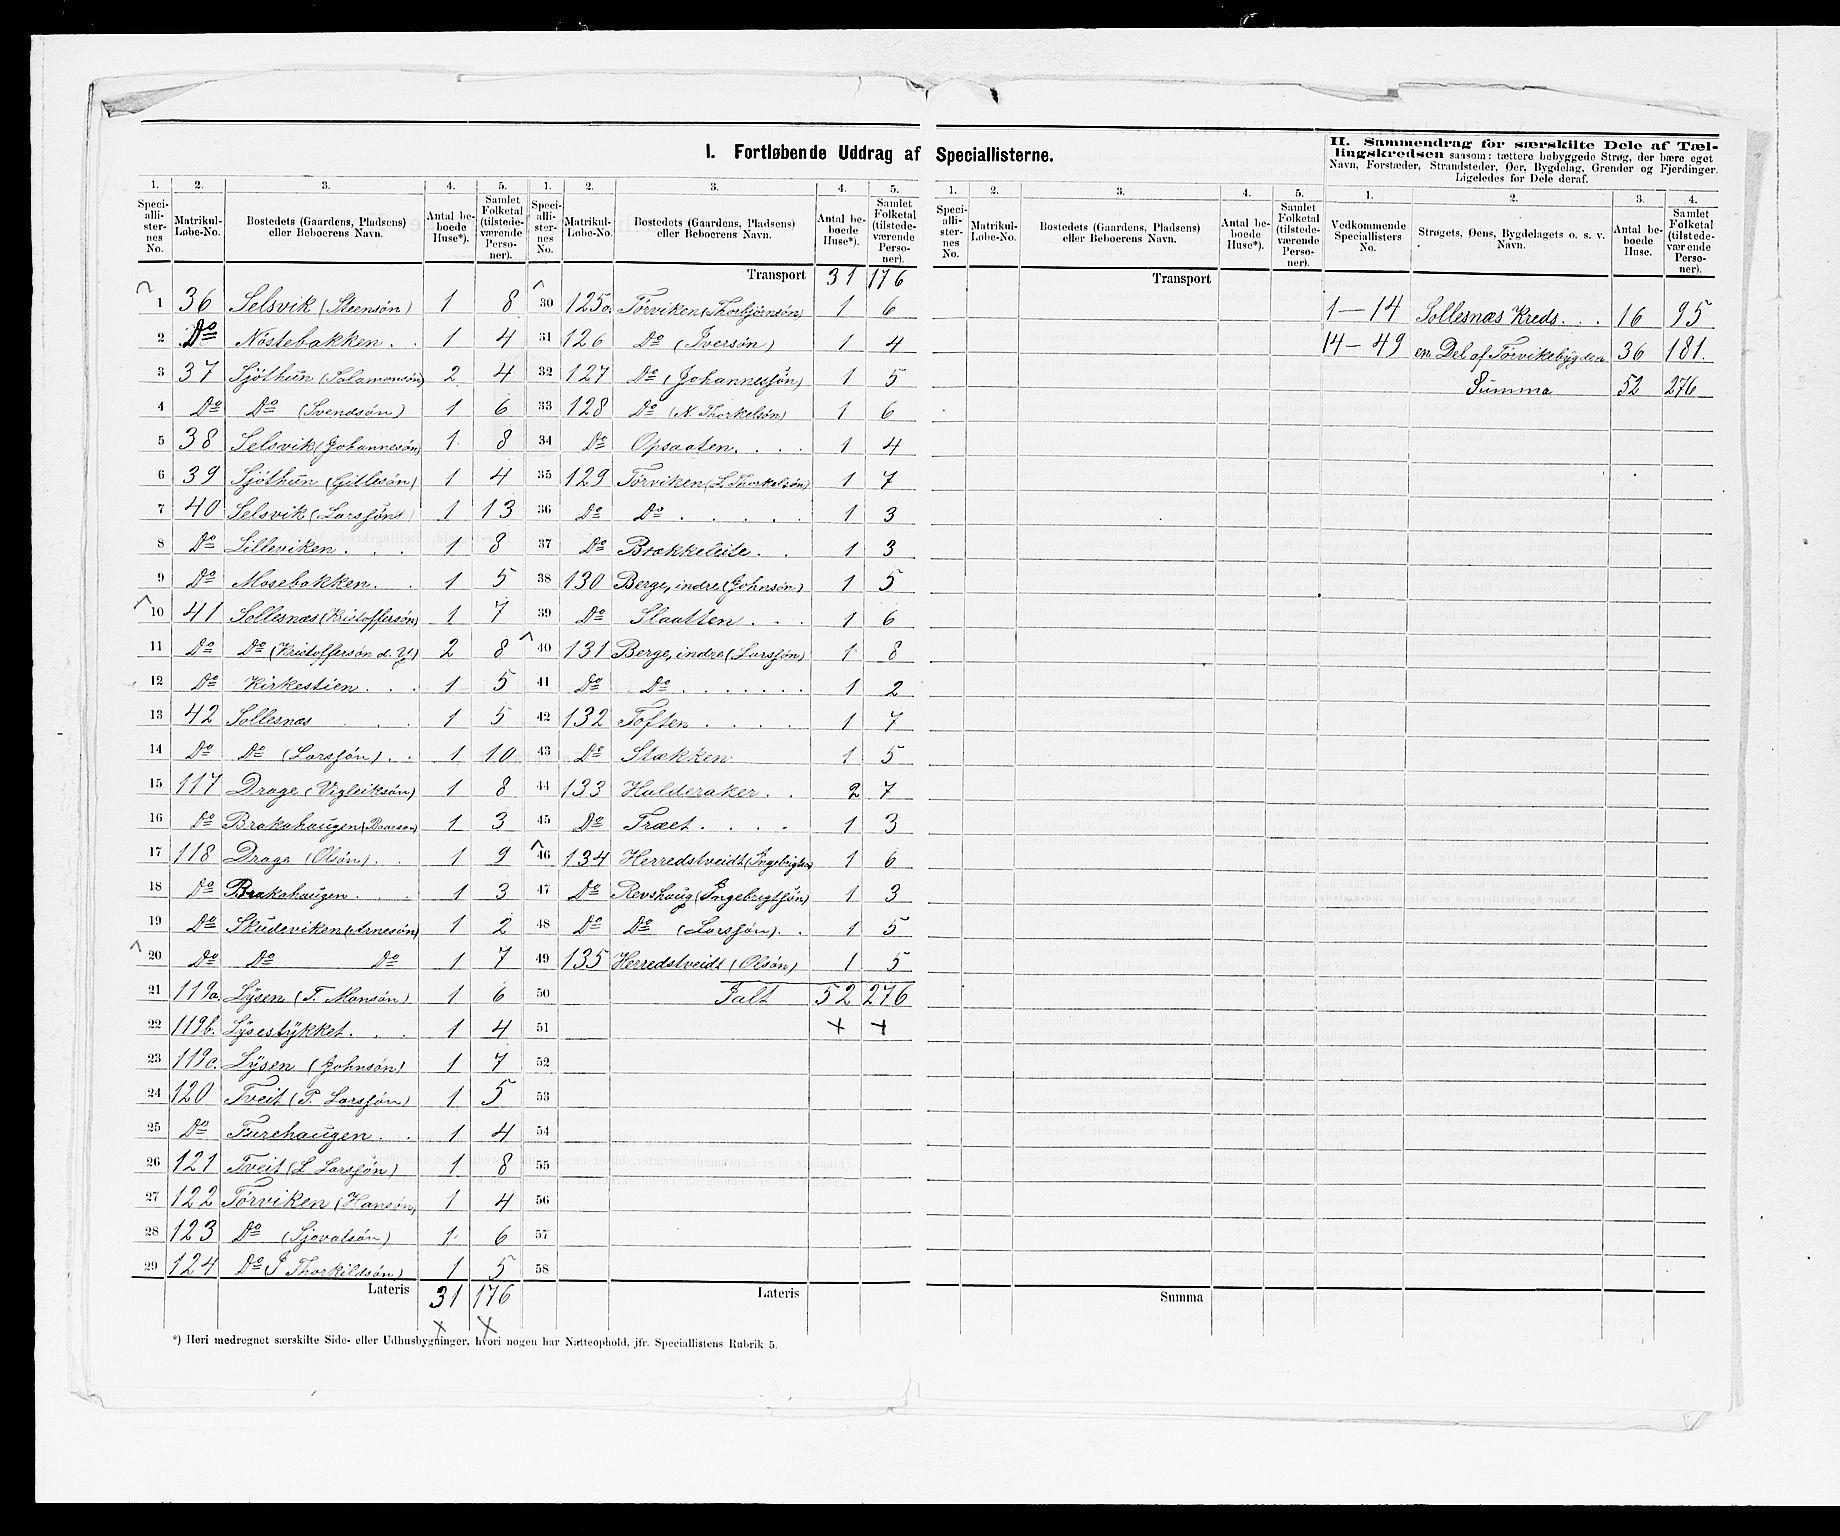 I. Fortløbende Uddrag af Speciallisterne.
II. Sammendrag for særskilte Dele af Tællingskredsen saasom: tættere bebyggede Strøg, der bære eget
Navn, Forstæder, Strandsteder, Øer, Bygdelag, Grender og Fjerdinger.
Ligeledes for Dele deraf.
1. 2. 3. 4. 5.
Speciallisternes No. Matrikul-Løbe-No. Bostedets (Gaardens, Pladsens) eller Beboerens Navn. Antal beboede Huse*). Samlet Folketal (tilstedeværende Personer).
1 36 Selsvik (Steensøn) 1 8
2 Do Nøstebakken 1 4
3 37 Sjöthun (Salamonsøn) 2 4
4 Do Do (Svendsøn) 1 6
5 38 Selsvik (Johannesøn) 1 8
6 39 Sjöthun (Gitlesøn) 1 4
7 40 Selsvik (Larsjøns) 1 13
8 Do Lilleviken 1 8
9 Do Mosebakken 1 5
10 41 Sollesnæs (Kristoffersøn) 1 7
11 Do Do (Kristoffersøn d. Y) 2 8
12 Do Kirkestien 1 5
13 42 Sollesnæs 1 5
14 Do Do (Larsjøn) 1 10
15 117 Drage (Vigleiksøn) 1 8
16 Do Brakahaugen (Baarson) 1 3
17 118 Drage (Olsøn) 1 9
18 Do Brakahaugen 1 3
19 Do Skudeviken (Arnesøn) 1 2
20 Do Do Do 1 7
21 119a. Lÿsen (T. Monsøn) 1 6
22 119b. Lÿsestÿkket 1 4
23 119c. Lÿsen (Johnsøn) 1 7
24 120 Tveit (P. Larsjøn) 1 5
25 Do Furehaugen 1 4
26 121 Tveit (L Larsjøn) 1 8
27 122 Tørviken (Hansøn) 1 4
28 123 Do (Sjovatsøn) 1 6
29 124 Do (J Thorkildsøn) 1 5
Lateris 31 176
1. 2. 3. 4. 5.
Speciallisternes No. Matrikul-Løbe-No. Bostedets (Gaardens, Pladsens) eller Beboerens Navn. Antal beboede Huse*). Samlet Folketal (tilstedeværende Personer).
Transport 31 176
30 125a. Tørviken (Thorbjörnsøn) 1 6
31 126 Do (Iversøn) 1 4
32 127 Do (Johannesjøn) 1 5
33 128 Do (N. Thorkelsøn) 1 6
34 Do Opsaaten 1 4
35 129 Tørviken (L. Thorkelsøn) 1 7
36 Do Do 1 3
37 Do Brækkeleite 1 3
38 130 Berge, indre (Johnsøn) 1 5
39 Do Slaatten 1 6
40 131 Berge, indre (Larsjøn) 1 8
41 Do Do 1 2
42 132 Toften 1 7
43 Do Stækken 1 5
44 133 Halderaker 2 7
45 Do Træet 1 3
46 134 Herredstveidt (Ingebrigtsøn) 1 6
47 Do Revshaug (Ingebrigtsjøn) 1 3
48 Do Do (Larsjøn) 1 5
49 135 Herredstveidt (Olsøn) 1 5
50 Ialt 52 276
51 + +
52
53
54
55
56
57
58
Lateris
1. 2. 3. 4. 5.
Speciallisternes No. Matrikul-Løbe-No. Bostedets (Gaardens, Pladsens) eller Beboerens Navn. Antal beboede Huse*). Samlet Folketal (tilstedeværende Personer).
Transport
Summa
1. 2. 3. 4.
Vedkommende Speciallisters No. Strøgets, Øens, Bygdelagets o. s. v. Navn. Antal beboede Huse. Samlet Folketal (tilstedeværende Personer).
1—14 Sollesnæs Kreds 16 95
14—49 en Del af Tørvikebygden 36 181.
Summa 52 276
*) Heri medregnet særskilte Side- eller Udhusbygninger, hvori nogen har Natteophold, jfr. Speciallistens Rubrik 5.